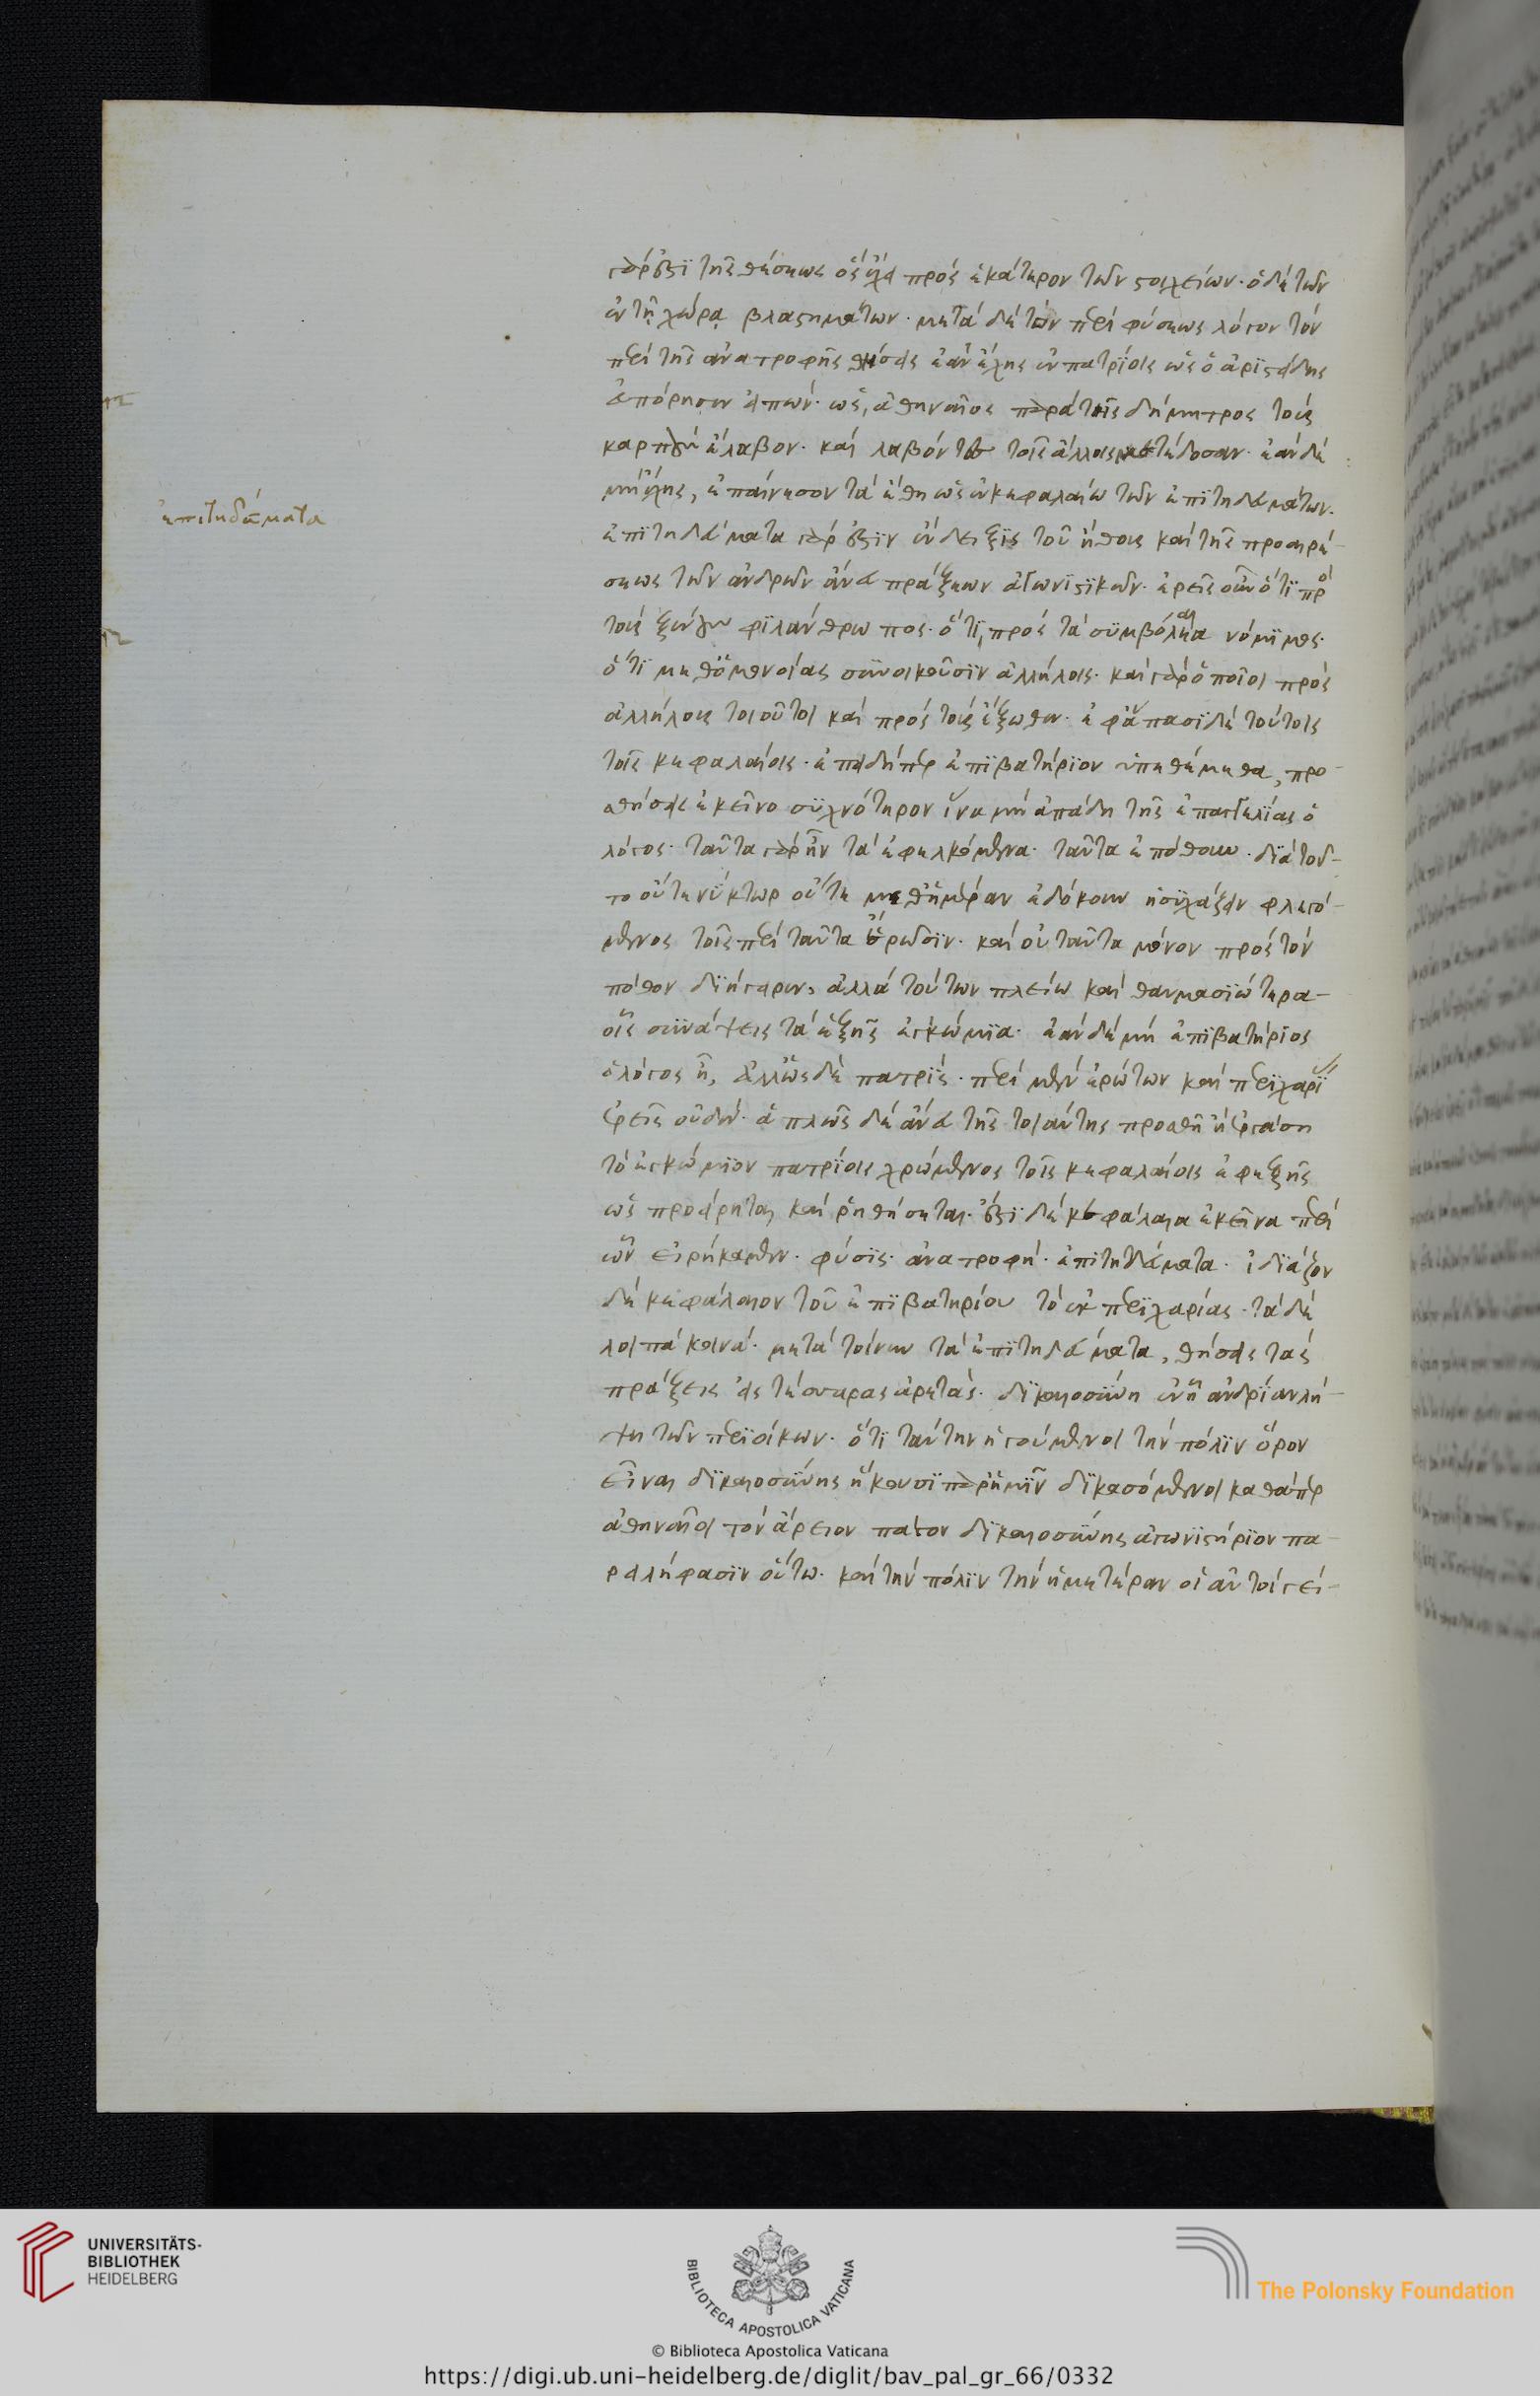 γάρ ἐστι τῆς θέσεως ὡς ἔχει πρὸς ἑκάτερον τῶν στοιχείων· ὁ δὲ τῶν
ἐν τῇ χώρᾳ βλαστημάτων· μετὰ δὲ τὸν περὶ φύσεως λόγον τὸν
περὶ τῆς ἀνατροφῆς θήσεις ἐὰν ἔχης ἐν πατρίοις ὡς ὁ ἀριστείδης
εὐπόρησεν εἰπών· ὡς, ἀθηναῖος παρὰ τῆς δήμητρος τοὺς
καρποὺς ἔλαβον· καὶ λαβόντες τοῖς ἄλλοις μετέδοσαν· ἐὰν δὲ
μὴ ἔχης, ἐπαίνεσον τὰ ἔθη ὡς ἐν κεφαλαίω τῶν ἐπιτηδευμάτων·
ἐπιτηδεύματα
ἐπιτηδεύματα γάρ ἐστιν ἔνδειξις τοῦ ἤθους καὶ τῆς προαιρέ-
σεως τῶν ἀνδρῶν ἄνευ πράξεων ἀγωνιστικῶν· ἐρεῖς οὖν ὅτι πρὸς
τοὺς ξένους φιλάνθρωπος· ὅτι, πρὸς τὰ συμβόλαια νόμιμος·
ὅτι μεθ' ὁμονοίας συνοικοῦσιν ἀλλήλοις· καὶ γὰρ ὁποῖοι πρὸς
ἀλλήλους τοιοῦτοι καὶ πρὸς τοὺς ἔξωθεν· ἐφ' ἅπασι δὲ τούτοις
τοῖς κεφαλαίοις· ἐπειδήπερ ἐπιβατήριον ὑπεθέμεθα, προσ-
θήσεις ἐκεῖνο συχνότερον ἵνα μὴ ἀπάδη τῆς ἐπαγγελίας ὁ
λόγος· ταῦτα γὰρ ἦν τὰ ἐφελκόμενα· ταῦτα ἐπόθουν· διὰ τοῦ-
το οὔτε νύκτωρ οὔτε μεθ' ἡμέραν ἐδόκουν ἡσυχάζειν φλεγό-
μενος τοῖς περὶ ταῦτα ἔρωσιν· καὶ οὐ ταῦτα μόνον πρὸς τὸν
πόθον διήγειρεν, ἀλλὰ τούτων πλείω καὶ θαυμασιώτερα-
οἷς συνάψεις τὰ ἑξῆς ἐγκώμια· ἐὰν δὲ μὴ ἐπιβατήριος
ὁ λόγος ἦ, ἄλλως δὲ πατρίς· περὶ μὲν ἐρώτων καὶ περιχαρί
ἐρεῖς οὐδέν· ἁπλῶς δὲ ἄνευ τῆς τοιαύτης προσθή ἐργάση
τὸ ἐγκώμιον πατρίοις χρώμενος τοῖς κεφαλαίοις ἐφεξῆς
ὡς προείρηται καὶ ῥηθήσεται· ἔστι δὲ κεφάλαια ἐκεῖνα περὶ
ὧν εἰρήκαμεν· φύσις· ἀνατροφή· ἐπιτηδεύματα· ἰδιάζον
δὲ κεφάλαιον τοῦ ἐπιβατηρίου τὸ ἐκ περιχαρίας· τὰ δὲ
λοιπὰ κοινά· μετὰ τοίνυν τὰ ἐπιτηδεύματα, θήσεις τὰς
πράξεις εἰς τέσσαρας ἀρετάς· δικαιοσύνη
τῶν περιοίκων· ὅτι ταύτην ἡγούμενοι τὴν πόλιν ὅρον
εἶναι δικαιοσύνης ἥκουσι παρ' ἡμῖν δικασόμενοι καθάπερ
ἀθηναῖοι τὸν ἄρειον πάγον δικαιοσύνης ἀγωνιστήριον πα-
ρειλήφασιν οὕτω· καὶ τὴν πόλιν τὴν ἡμετέραν οἱ ἀστυγεί-
UNIVERSITÄTS-
BIBLIOTHEK
HEIDELBERG
BIBLIOTECA APOSTOLICA VATICANA
The Polonsky Foundation
© Biblioteca Apostolica Vaticana
https://digi.ub.uni-heidelberg.de/diglit/bav_pal_gr_66/0332